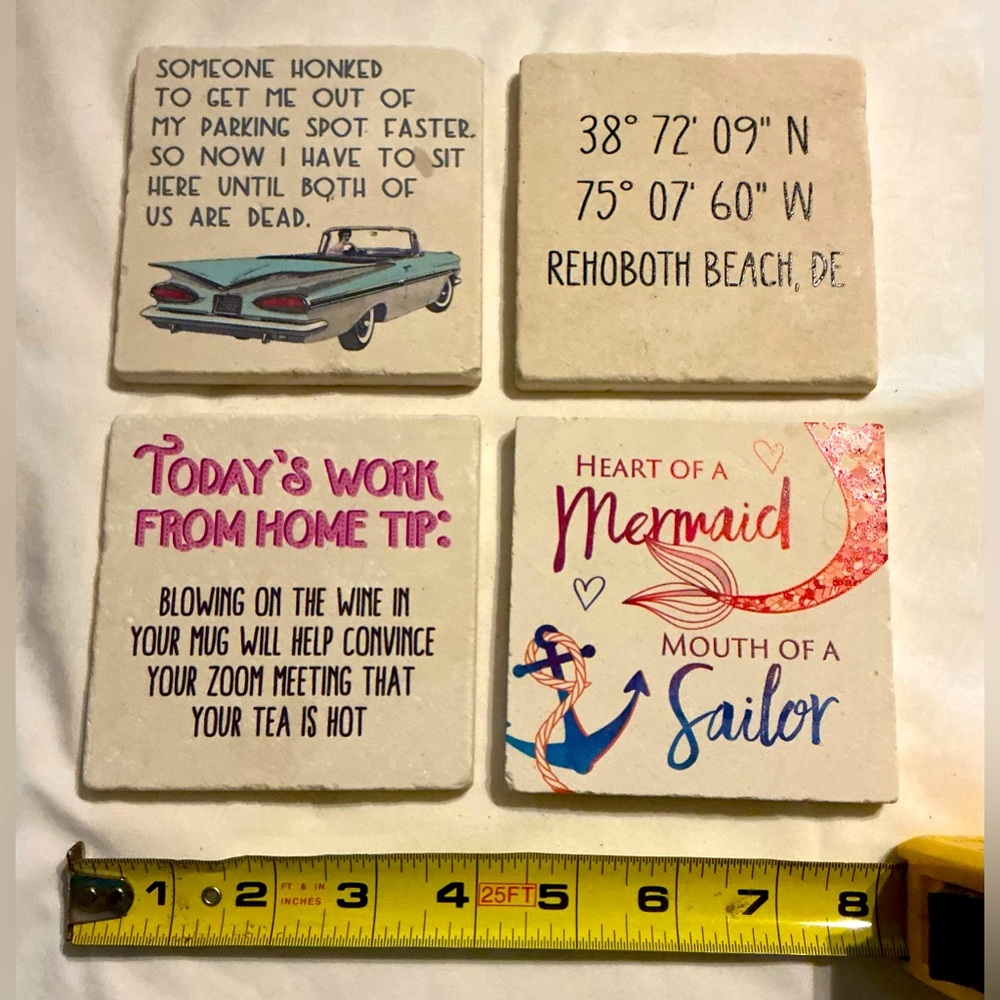 SOMEONE HONKED
TO GET ME OUT OF
MY PARKING SPOT FASTER.
SO NOW I HAVE TO SIT
HERE UNTIL BOTH OF
US ARE DEAD.
38° 72' 09" N
75° 07' 60" W
REHOBOTH BEACH, DE
TODAY'S WORK
FROM HOME TIP:
BLOWING ON THE WINE IN
YOUR MUG WILL HELP CONVINCE
YOUR ZOOM MEETING THAT
YOUR TEA IS HOT
HEART OF A
Mermaid
MOUTH OF A
Sailor
1 2 FT & IN 3 4 25FT 5 6 7 8
INCHES